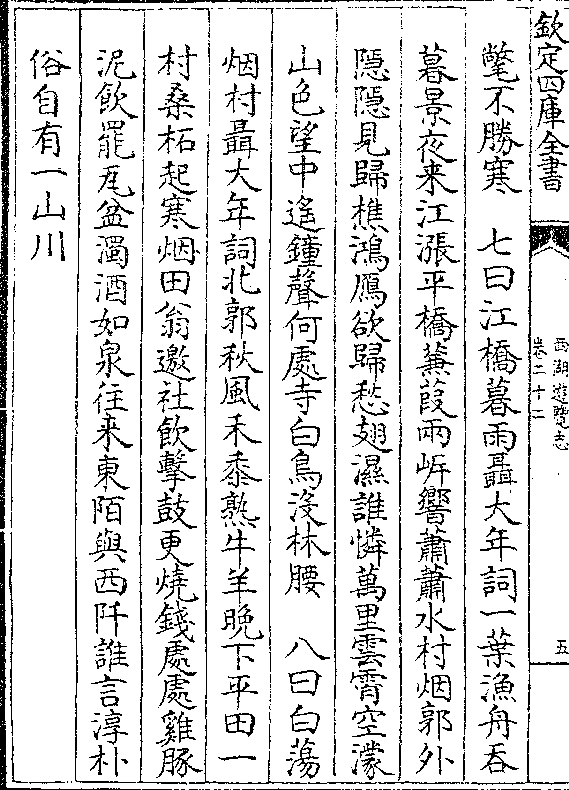 欽定四庫全書
西湖遊覽志
卷二十二
五
氅不勝寒　七曰江橋暮雨聶大年詞一葉漁舟吞
暮景夜来江漲平橋蒹葭兩岍響蕭蕭水村烟郭外
隠隠見歸樵鴻鴈欲歸愁翅濕誰憐萬里雲霄空濛
山色望中遙鐘聲何處寺白鳥沒林腰　八曰白蕩
烟村聶大年詞北郭秋風禾黍熟牛羊晚下平田一
村桑柘起寒烟田翁邀社飲擊鼓更燒錢處處雞豚
泥飲罷瓦盆濁酒如泉往来東陌與西阡誰言淳朴
俗自有一山川